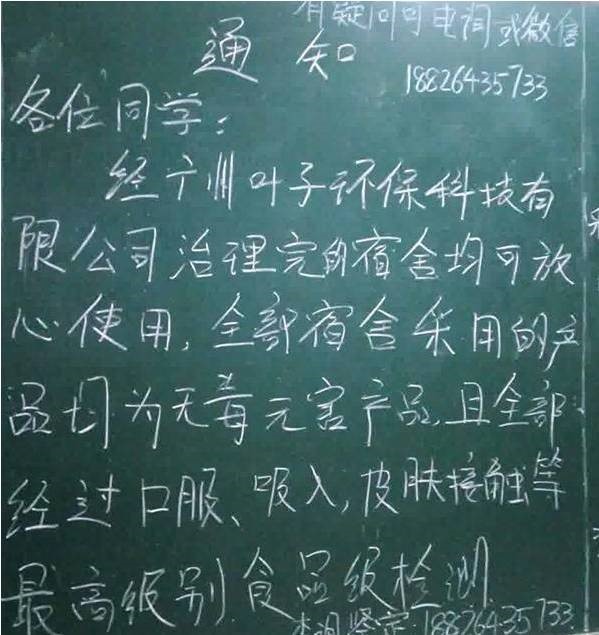 有疑问可电询或微信
18826435733
通知
各位同学:
经广州叶子环保科技有
限公司治理完的宿舍均可放
心使用,全部宿舍采用的产
品均为无毒无害产品,且全部
经过口服、吸入,皮肤接触等
最高级别食品级检测
18826435733